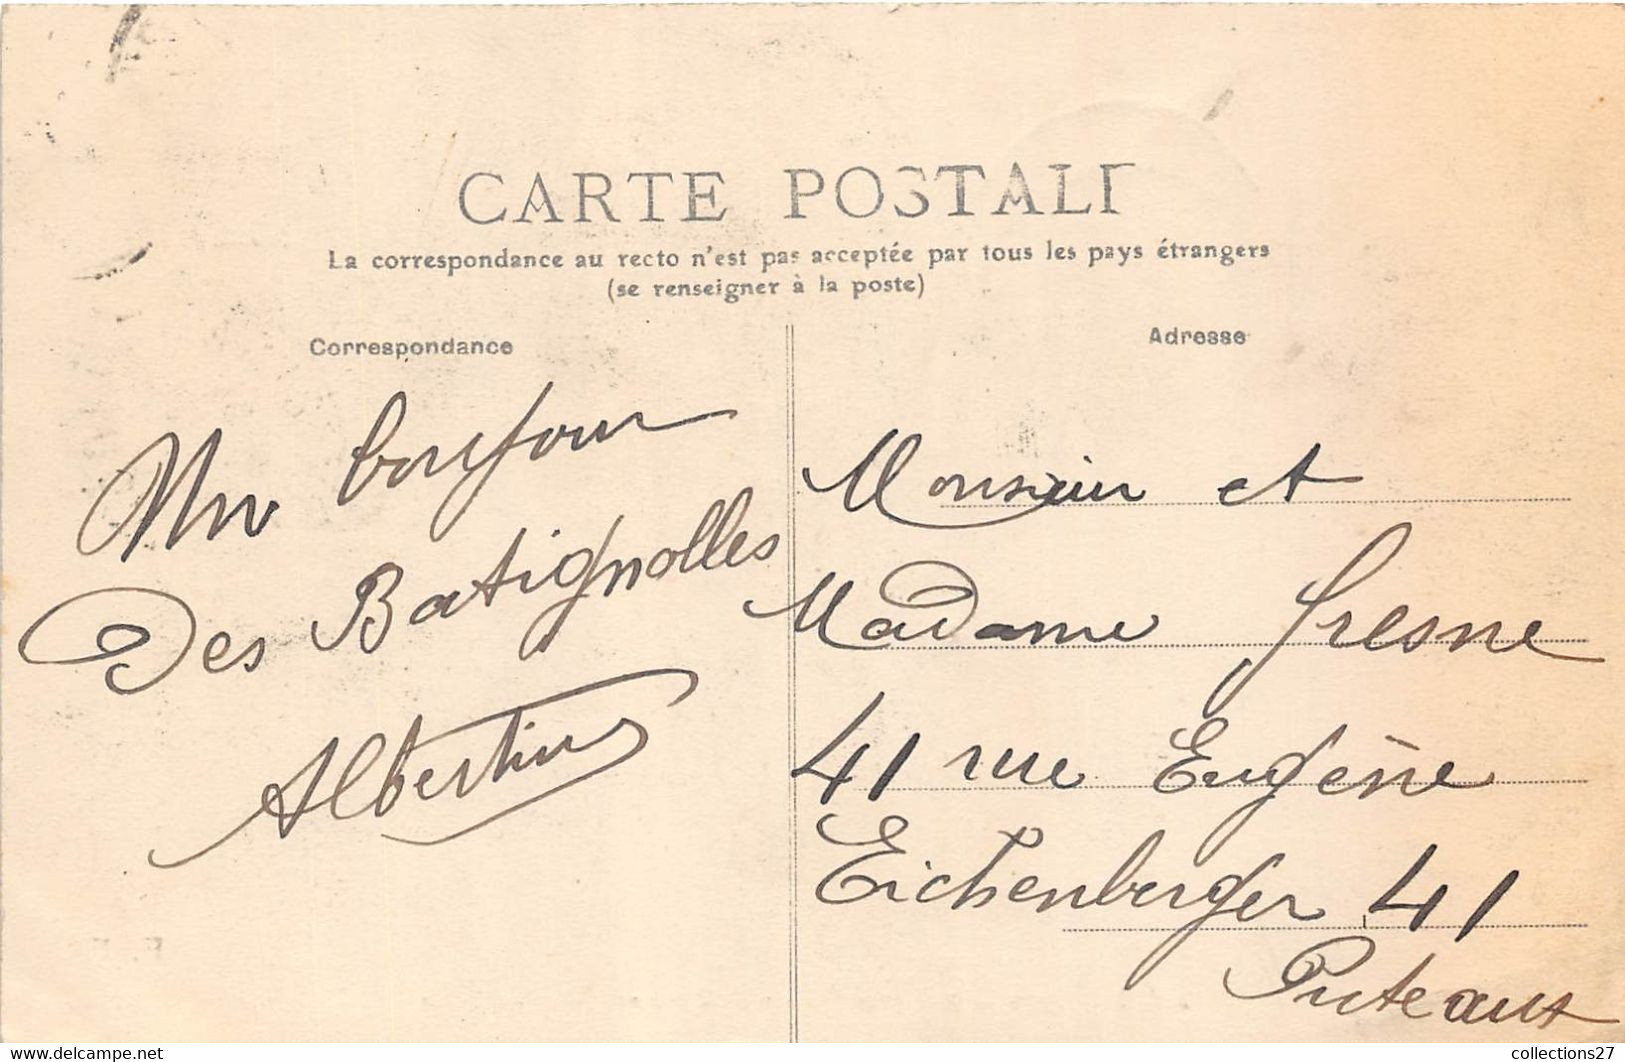 CARTE POSTALE
La correspondance au recto n'est pas acceptée par tous les pays étrangers
(se renseigner à la poste)
Correspondance
Adresse
Un bonjour
Des Batignolles
Albertine
Monsieur et
Madame Fresne
41 rue Eugène
Eichenberger 41
Puteaux
www.delcampe.net
collections27